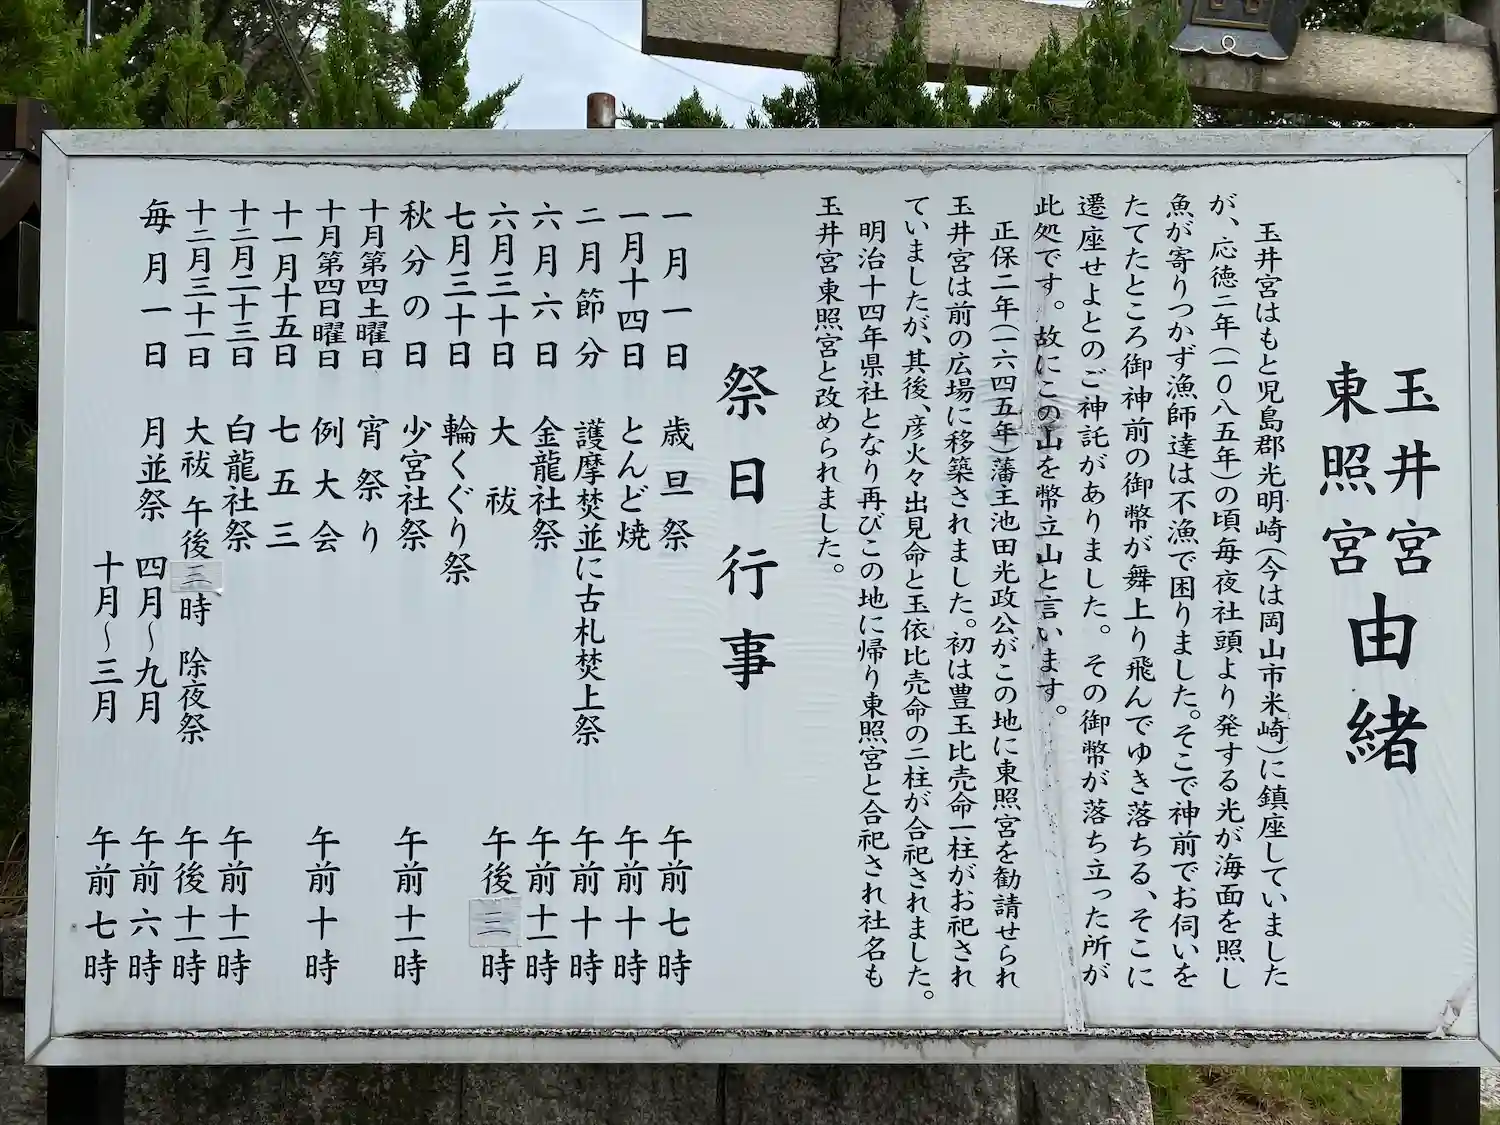 玉井宮
東照宮
由緒
玉井宮はもと児島郡光明崎(今は岡山市米崎)に鎮座していました
が、応徳二年(一〇八五年)の頃毎夜社頭より発する光が海面を照し
魚が寄りつかず漁師達は不漁で困りました。そこで神前でお伺いを
たてたところ御神前の御幣が舞上り飛んでゆき落ちる、そこに
遷座せよとのご神託がありました。その御幣が落ち立った所が
此処です。故にこの山を幣立山と言います。
正保二年(一六四五年)藩主池田光政公がこの地に東照宮を勧請せられ
玉井宮は前の広場に移築されました。初は豊玉比売命一柱がお祀され
ていましたが、其後、彦火々出見命と玉依比売命の二柱が合祀されました。
明治十四年県社となり再びこの地に帰り東照宮と合祀され社名も
玉井宮東照宮と改められました。
祭日行事
一月一日 歳旦祭 午前七時
一月十四日 とんど焼 午前十時
二月節分 護摩焚並に古札焚上祭 午前十時
六月六日 金龍社祭 午前十一時
六月三十日 大祓 午後三時
七月三十日 輪くぐり祭
秋分の日 少宮社祭 午前十一時
十月第四土曜日 宵祭り
十月第四日曜日 例大会 午前十時
十一月十五日 七五三
十二月二十三日 白龍社祭 午前十一時
十二月三十一日 大祓 午後三時 除夜祭 午後十一時
毎月一日 月並祭 四月~九月 午前六時
十月~三月 午前七時